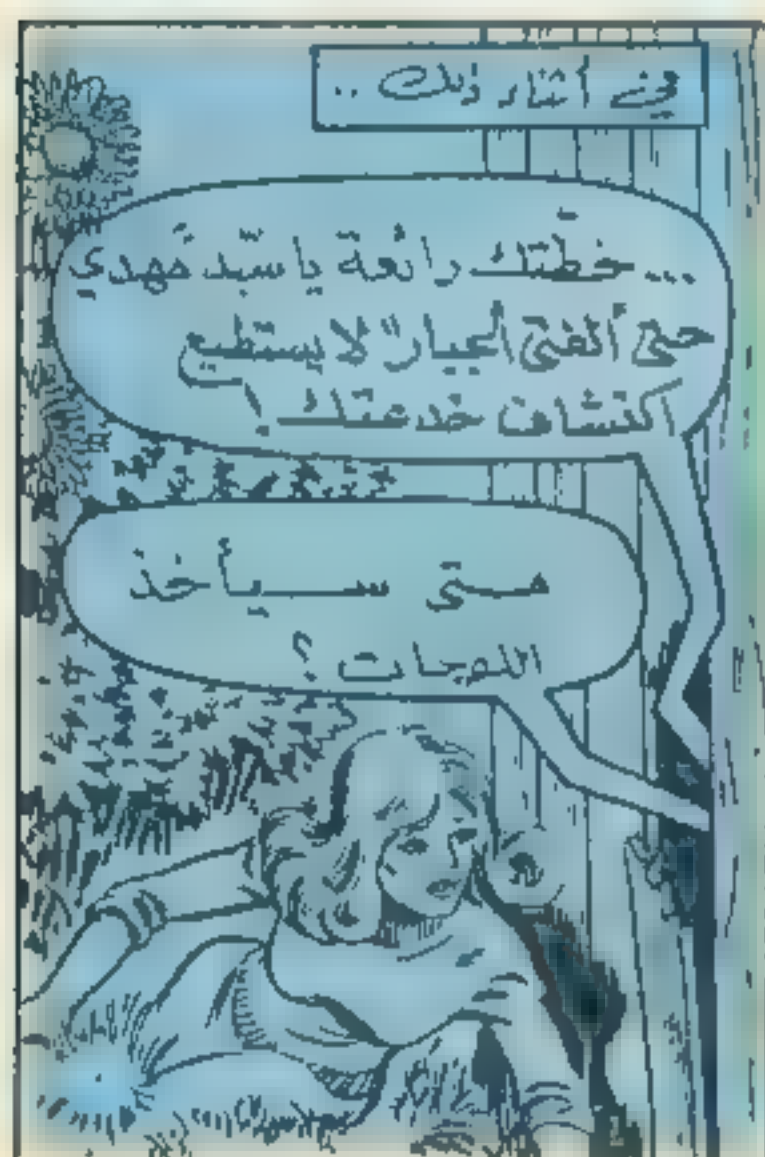 في أثناء ذلك ..
... خطّتك رائعة يا سيّد مهدي
حتى ألفتى الجبار" لا يستطيع
اكتشاف خدعتك !
متى سيأخذ
اللوحات ؟